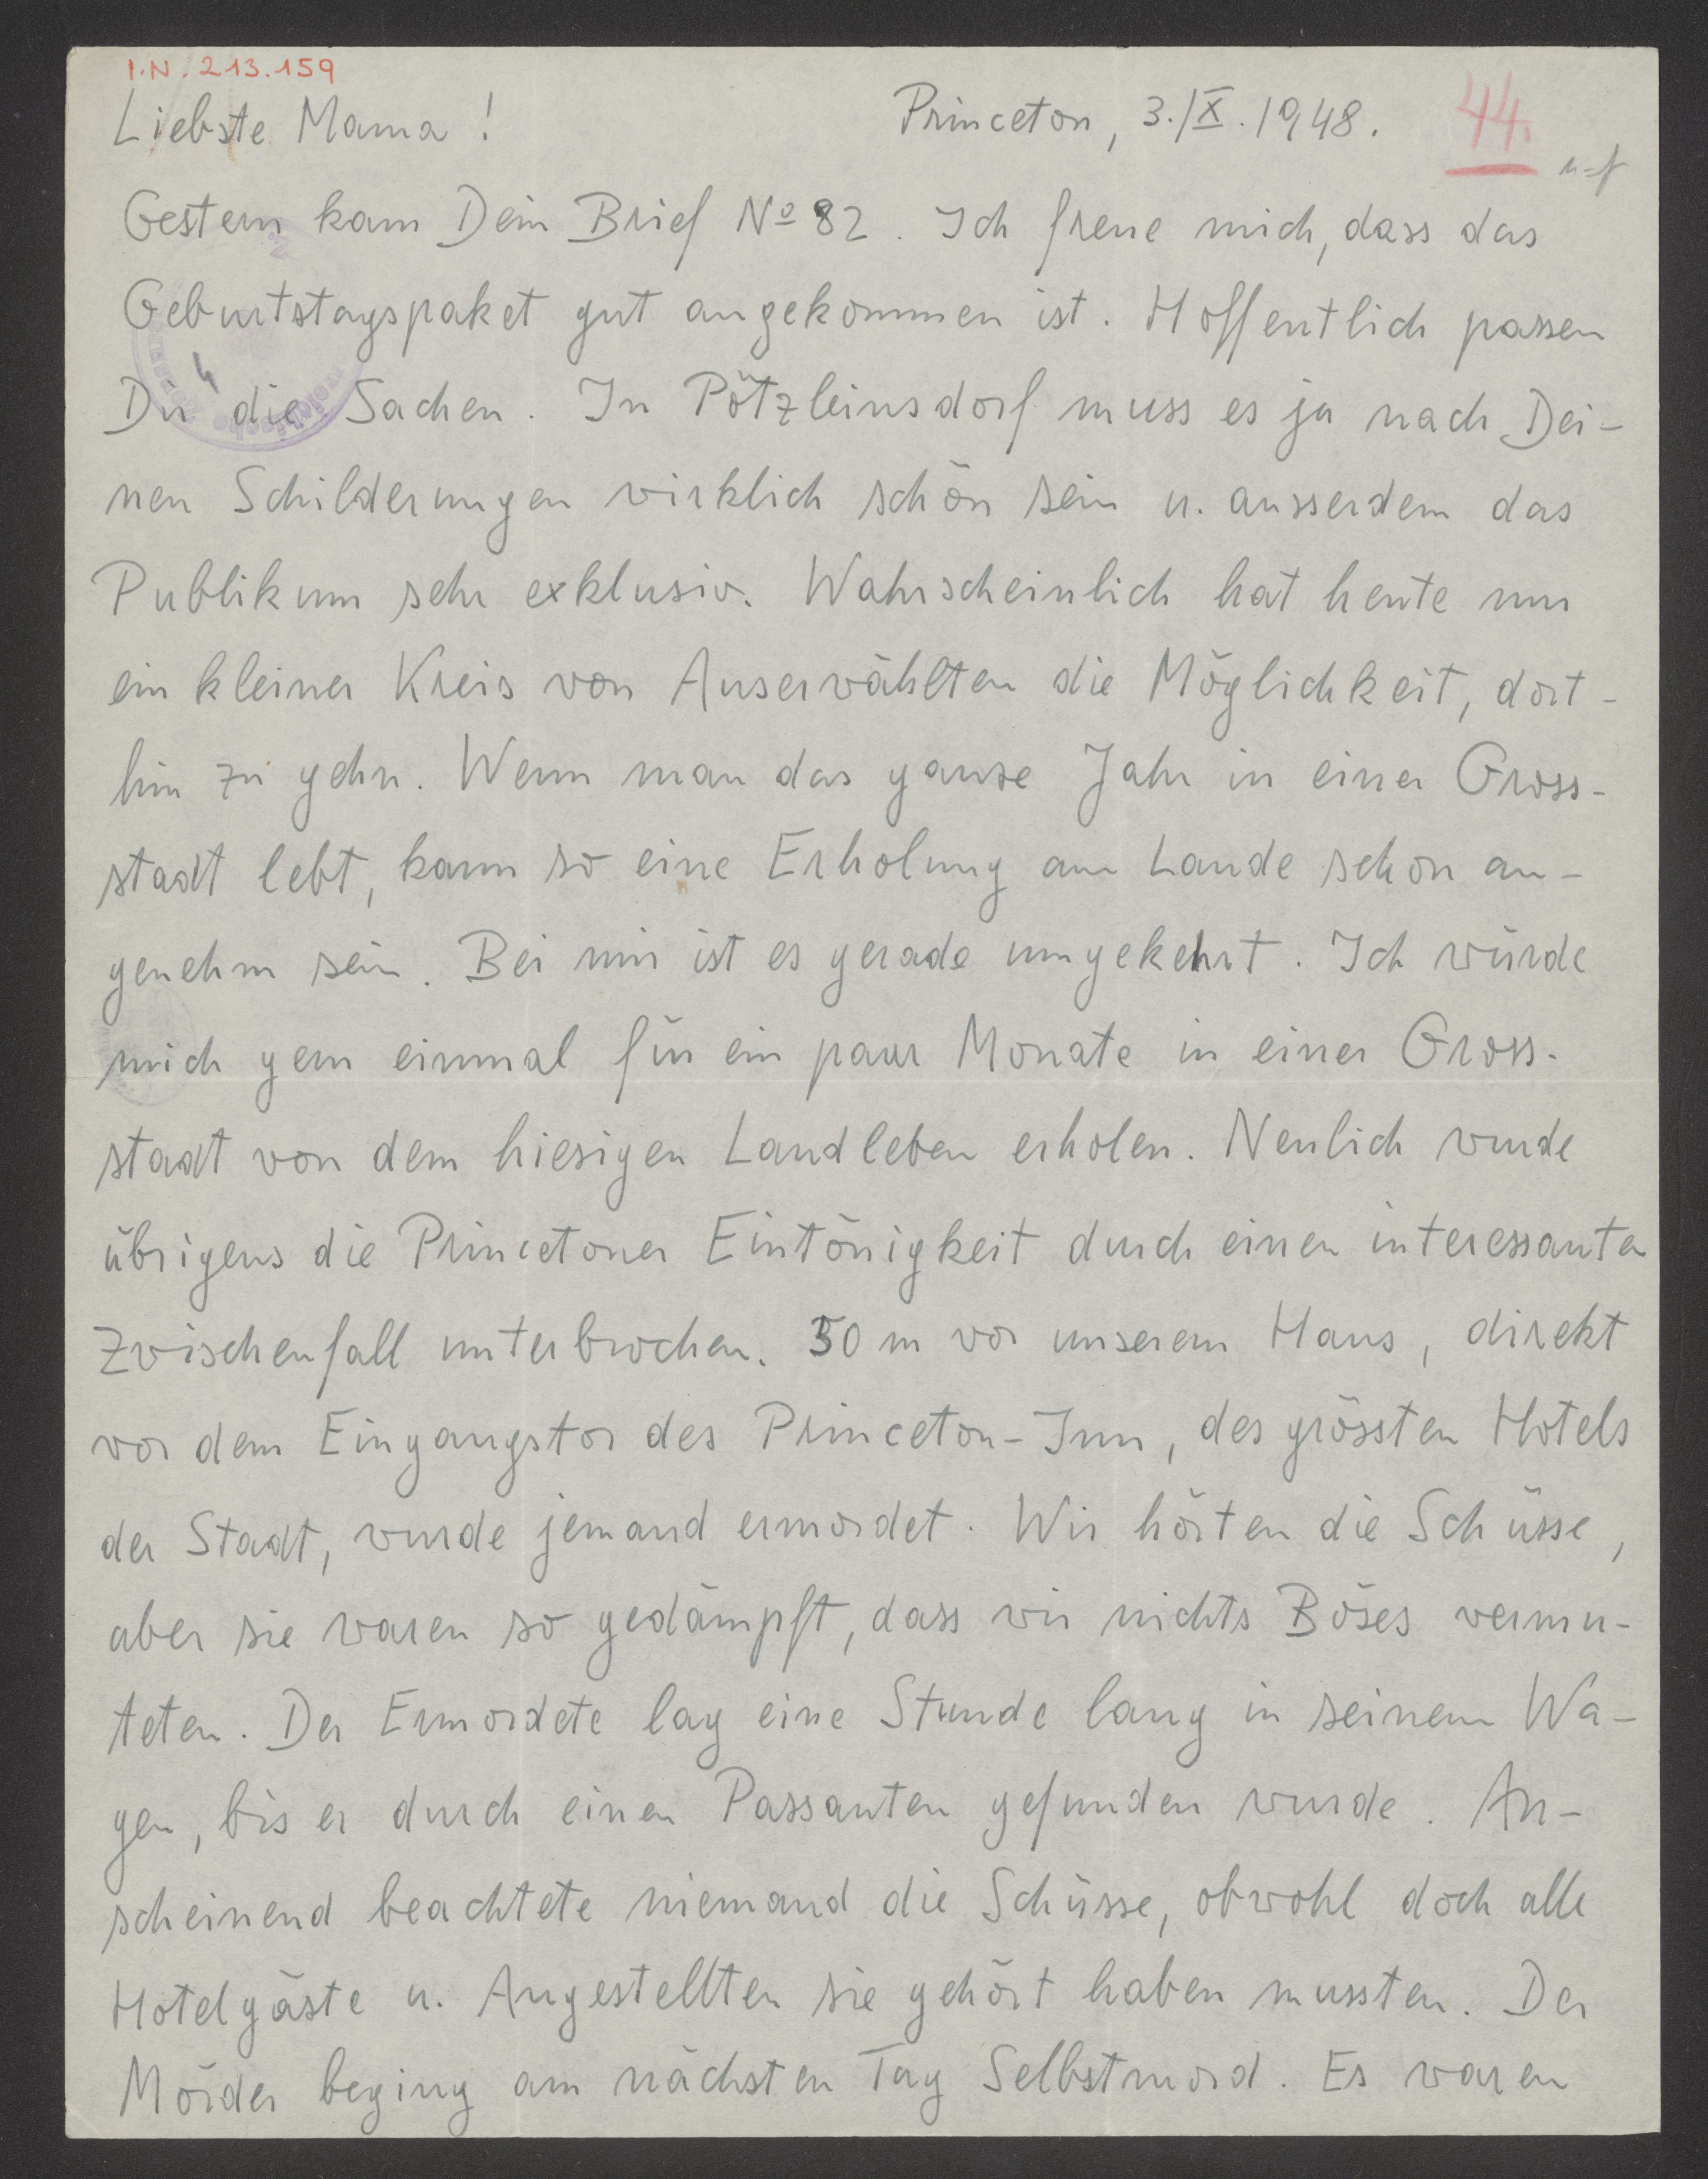 I.N. 213.159
Liebste Mama! Princeton, 3./X. 1948. 44.
Gestern kam Dein Brief Nº 82. Ich freue mich, dass das
Geburtstagspaket gut angekommen ist. Hoffentlich passen
Dir die Sachen. In Pötzleinsdorf muss es ja nach Dei-
nen Schilderungen wirklich schön sein u. ausserdem das
Publikum sehr exklusiv. Wahrscheinlich hat heute nur
ein kleiner Kreis von Auserwählten die Möglichkeit, dort-
hin zu gehn. Wenn man das ganze Jahr in einer Gross-
stadt lebt, kann so eine Erholung am Lande schon an-
genehm sein. Bei mir ist es gerade umgekehrt. Ich würde
mich gern einmal für ein paar Monate in einer Gross-
stadt von dem hiesigen Landleben erholen. Neulich wurde
übrigens die Princetoner Eintönigkeit durch einen interessanten
Zwischenfall unterbrochen. 50 m vor unserem Haus, direkt
vor dem Eingangstor des Princeton-Inn, des grössten Hotels
der Stadt, wurde jemand ermordet. Wir hörten die Schüsse,
aber sie waren so gedämpft, dass wir nichts Böses vermu-
teten. Der Ermordete lag eine Stunde lang in seinem Wa-
gen, bis er durch einen Passanten gefunden wurde. An-
scheinend beachtete niemand die Schüsse, obwohl doch alle
Hotelgäste u. Angestellten sie gehört haben mussten. Der
Mörder beging am nächsten Tag Selbstmord. Es waren